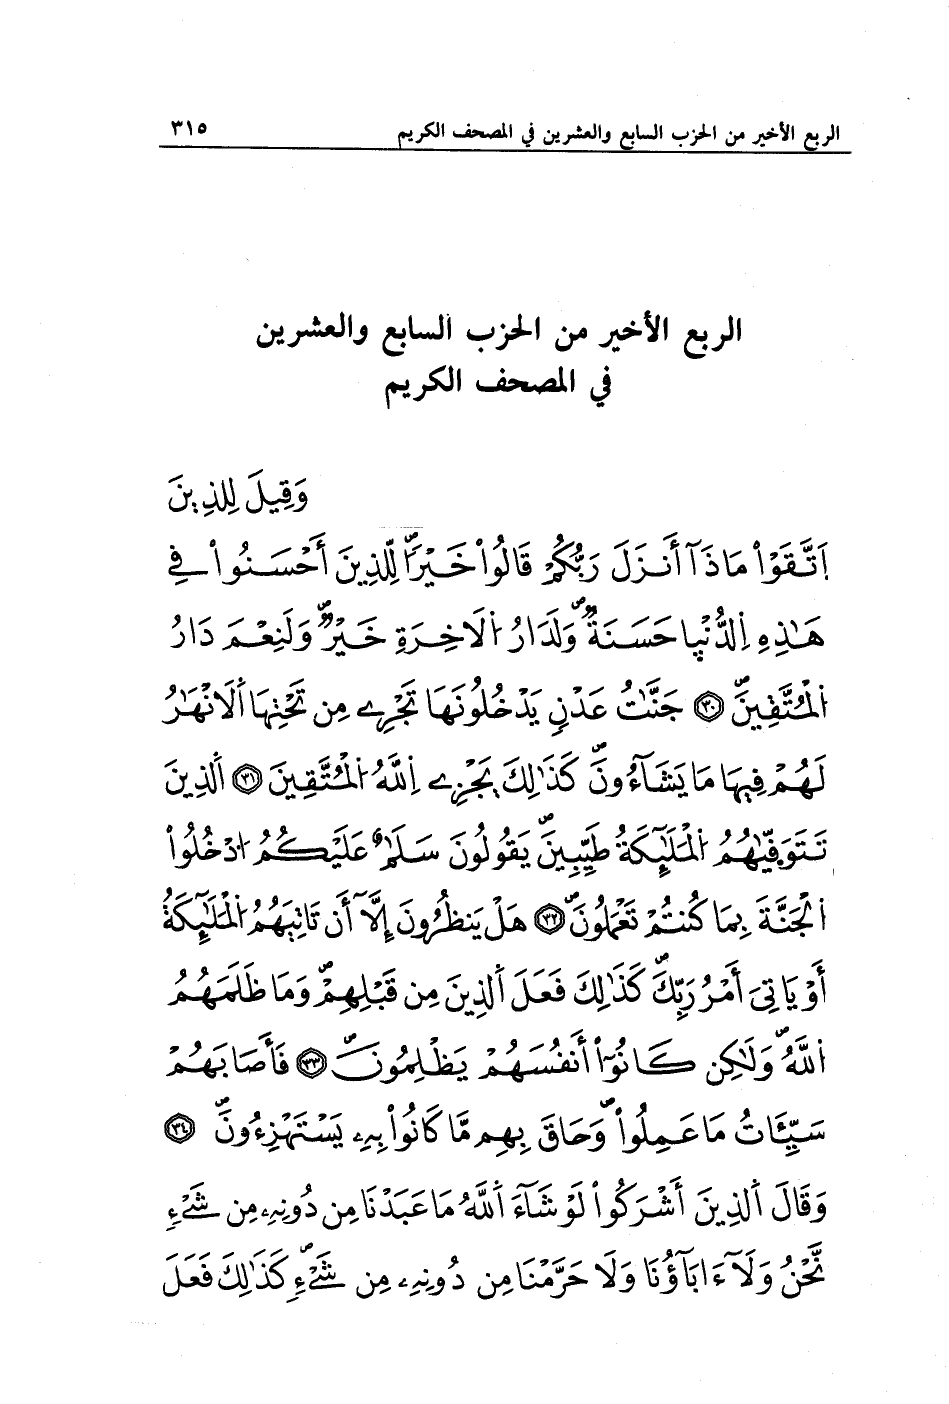 الربع الأخير من الحزب السابع والعشرين في المصحف الكريم ٣١٥
الربع الأخير من الحزب السابع والعشرين
في المصحف الكريم
وَقِيلَ لِلذِينَ
اَتَّقَوْاْ مَاذَآ أَنزَلَ رَبُّكُمْ قَالُواْ خَيْراًۖ لِّلذِينَ أَحْسَنُواْ فِے
هَٰذِهِ اِلدُّنْيٜا حَسَنَةٞۖ وَلَدَارُ اُ۬لَاخِرَةِ خَيْرٞۖ وَلَنِعْمَ دَارُ
اُ۬لْمُتَّقِينَۖ ٣٠ جَنَّٰتُ عَدْنٖ يَدْخُلُونَهَا تَجْرِے مِن تَحْتِهَا اَ۬لَانْهَٰرُ
لَهُمْ فِيهَا مَا يَشَآءُونَۖ كَذَٰلِكَ يَجْزِے اِ۬للَّهُ اُ۬لْمُتَّقِينَ ٣١ اَ۬لذِينَ
تَتَوَفّٜيٰهُمُ اُ۬لْمَلَٰٓئِكَةُ طَيِّبِينَۖ يَقُولُونَ سَلَٰمٌ عَلَيْكُمُ اُ۟دْخُلُواْ
اُ۬لْجَنَّةَ بِمَا كُنتُمْ تَعْمَلُونَۖ ٣٢ هَلْ يَنظُرُونَ إِلَّآ أَن تَاتِيَهُمُ اُ۬لْمَلَٰٓئِكَةُ
أَوْ يَاتِيَ أَمْرُ رَبِّكَۖ كَذَٰلِكَ فَعَلَ اَ۬لذِينَ مِن قَبْلِهِمْۖ وَمَا ظَلَمَهُمُ
اُ۬للَّهُۖ وَلَٰكِن كَانُوٓاْ أَنفُسَهُمْ يَظْلِمُونَۖ ٣٣ فَأَصَابَهُمْ
سَيِّـَٔاتُ مَا عَمِلُواْۖ وَحَاقَ بِهِم مَّا كَانُواْ بِهِۦ يَسْتَهْزِءُونَۖ ٣٤
وَقَالَ اَ۬لذِينَ أَشْرَكُواْ لَوْ شَآءَ اَ۬للَّهُ مَا عَبَدْنَا مِن دُونِهِۦ مِن شَےْءٖ
نَّحْنُ وَلَآ ءَابَآؤُنَا وَلَا حَرَّمْنَا مِن دُونِهِۦ مِن شَےْءٖۖ كَذَٰلِكَ فَعَلَ